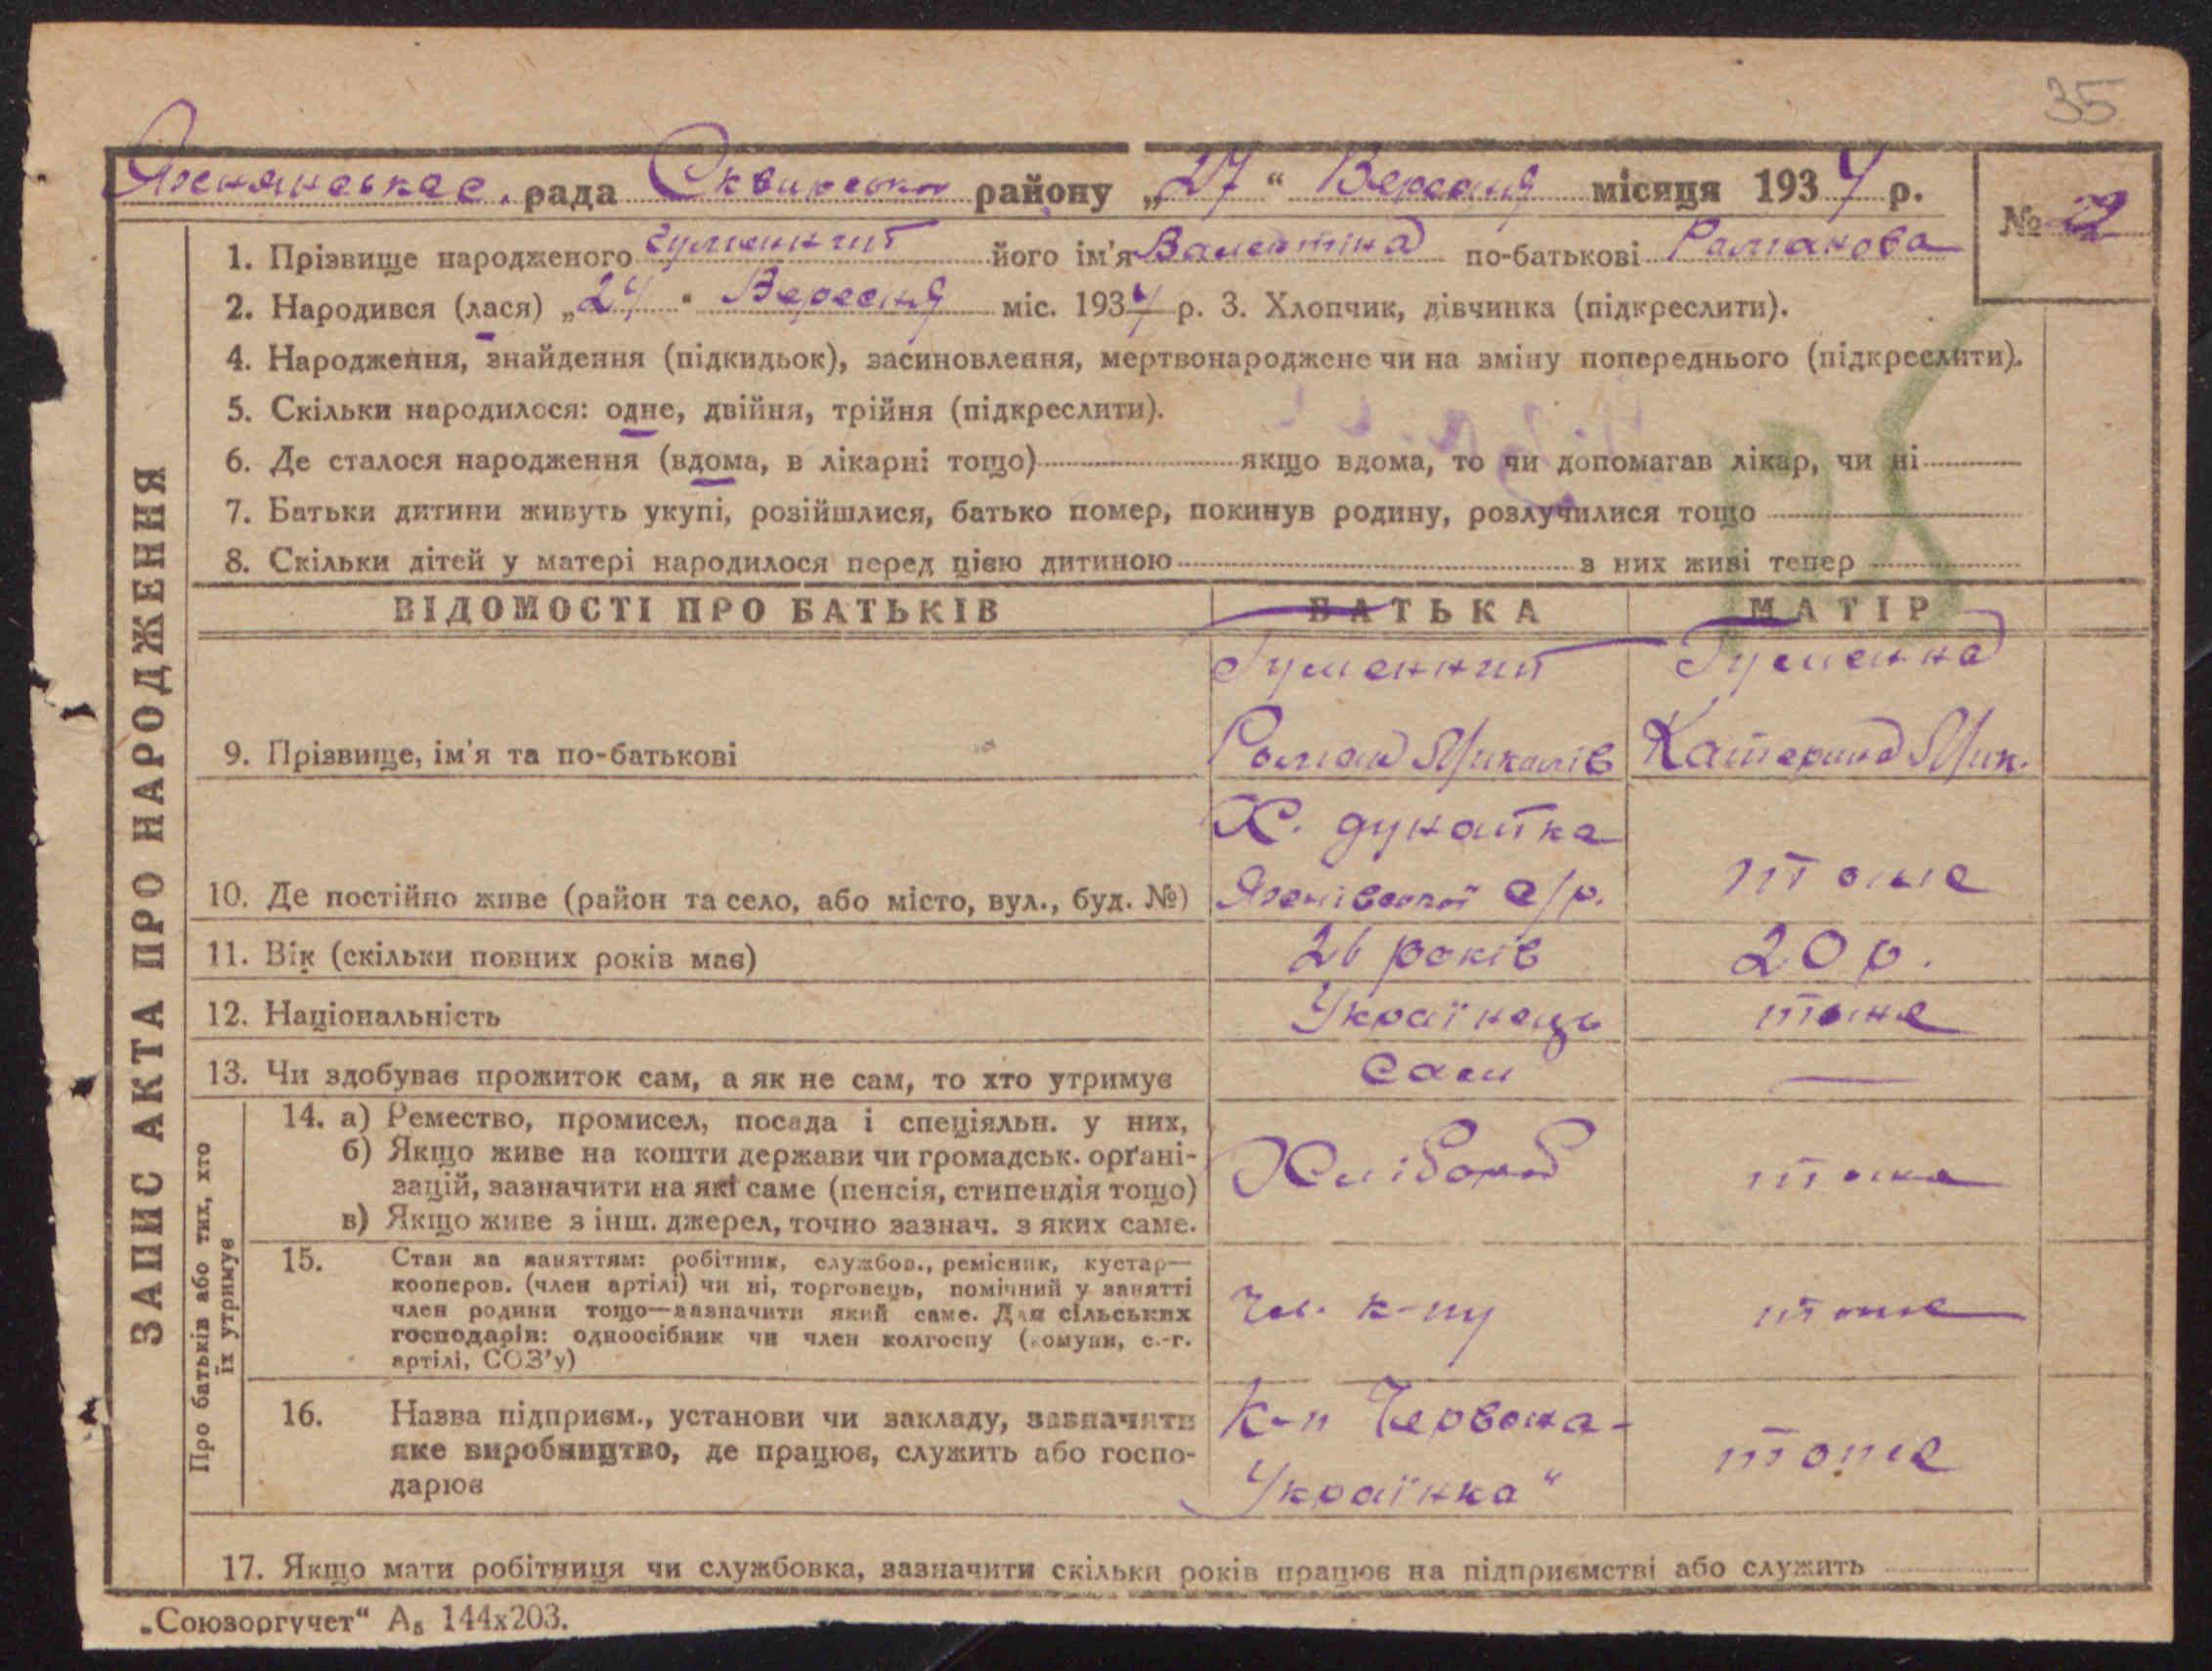 35
рада Сквирського району „27“ Вересня місяця 1934 р.
№ 22
1. Прізвище народженого Гуменний його ім'я Валентина по-батькові Романова
2. Народився (лася) „24“ Вересня міс. 1934 р. 3. Хлопчик, дівчинка (підкреслити).
4. Народження, знайдення (підкидьок), засиновлення, мертвонароджене чи на зміну попереднього (підкреслити).
5. Скільки народилося: одне, двійня, трійня (підкреслити).
6. Де сталося народження (вдома, в лікарні тощо) якщо вдома, то чи допомагав лікар, чи ні
7. Батьки дитини живуть укупі, розійшлися, батько помер, покинув родину, розлучилися тощо
8. Скільки дітей у матері народилося перед цією дитиною в них живі тепер
ЗАПИС АКТА ПРО НАРОДЖЕННЯ
ВІДОМОСТІ ПРО БАТЬКІВ БАТЬКА МАТІР
Гуменний Гуменна
9. Прізвище, ім'я та по-батькові Роман Микол. Катерина Мик.
Х. дунайка
10. Де постійно живе (район та село, або місто, вул., буд. №) с/р. тоже
11. Вік (скільки повних років має) 26 років 20 р.
12. Національність Українець тоже
13. Чи здобуває прожиток сам, а як не сам, то хто утримує сам —
Про батьків або тих, хто
їх утримує
14. а) Ремество, промисел, посада і спеціяльн. у них,
б) Якщо живе на кошти держави чи громадськ. орґані-
зацій, зазначити на які саме (пенсія, стипендія тощо) Хлібороб тоже
в) Якщо живе з інш. джерел, точно зазнач. з яких саме.
15. Стан за заняттям: робітник, службов., ремісник, кустар—
кооперов. (член артілі) чи ні, торговець, помічний у занятті
член родини тощо—зазначити який саме. Для сільських
господарів: одноосібник чи член колгоспу (комуни, с.-г.
артілі, СОЗ'у)
Чл. к-пу тоже
16. Назва підприєм., установи чи закладу, зазначити К-п Червона-
яке виробництво, де працює, служить або госпо- тоже
дарює Українка“
17. Якщо мати робітниця чи службовка, зазначити скільки років працює на підприємстві або служить
„Союзоргучет“ А₅ 144х203.